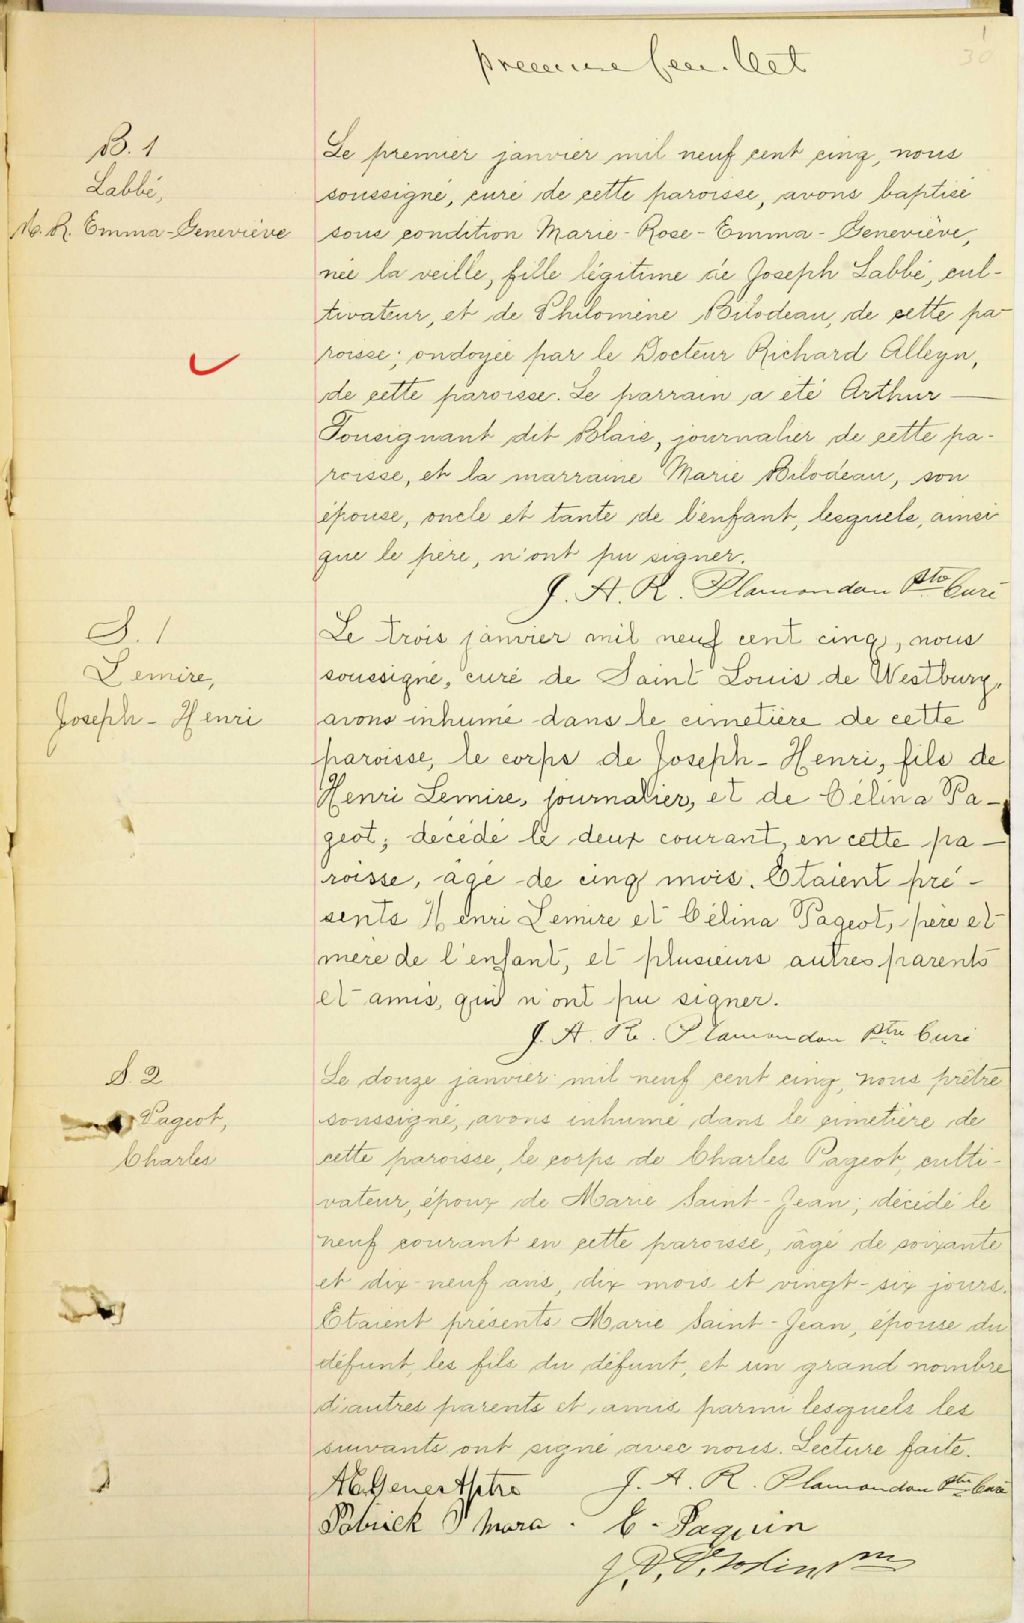 1
30
premier feuillet
B. 1
Labbé,
M. R. Emma-Geneviève
Le premier janvier mil neuf cent cinq, nous
soussigné, curé de cette paroisse, avons baptisé
sous condition Marie-Rose-Emma-Geneviève,
née la veille, fille légitime de Joseph Labbé, cul-
tivateur, et de Philomène Bilodeau, de cette pa-
roisse; ondoyée par le Docteur Richard Alleyn,
de cette paroisse. Le parrain a été Arthur —
Tousignant dit Blais, journalier de cette pa-
roisse, et la marraine Marie Bilodeau, son
épouse, oncle et tante de l'enfant, lesquels, ainsi
que le père, n'ont pu signer.
J. A. R. Plamondon Ptre Curé
S. 1
Lemire,
Joseph-Henri
Le trois janvier mil neuf cent cinq, nous
soussigné, curé de Saint Louis de Westbury,
avons inhumé dans le cimetière de cette
paroisse, le corps de Joseph-Henri, fils de
Henri Lemire, journalier, et de Célina Pa-
geot; décédé le deux courant, en cette pa-
roisse, âgé de cinq mois. Etaient pré-
sents Henri Lemire et Célina Pageot, père et
mère de l'enfant, et plusieurs autres parents
et amis, qui n'ont pu signer.
J. A. R. Plamondon Ptre Curé
S. 2
Pageot,
Charles
Le douze janvier mil neuf cent cinq, nous prêtre
soussigné, avons inhumé dans le cimetière de
cette paroisse, le corps de Charles Pageot, culti-
vateur, époux de Marie Saint-Jean; décédé le
neuf courant en cette paroisse, âgé de soixante
et dix-neuf ans, dix mois et vingt-six jours.
Etaient présents Marie Saint-Jean, épouse du
défunt, les fils du défunt, et un grand nombre
d'autres parents et amis parmi lesquels les
suivants ont signé avec nous. Lecture faite.
J. A. R. Plamondon Ptre Curé
Patrick O'Mara. E. Paquin